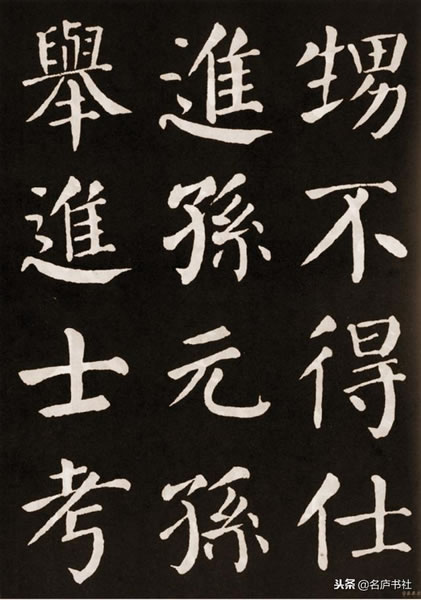 甥不得仕
進孫元孫
舉進士考
头条@名庐书社